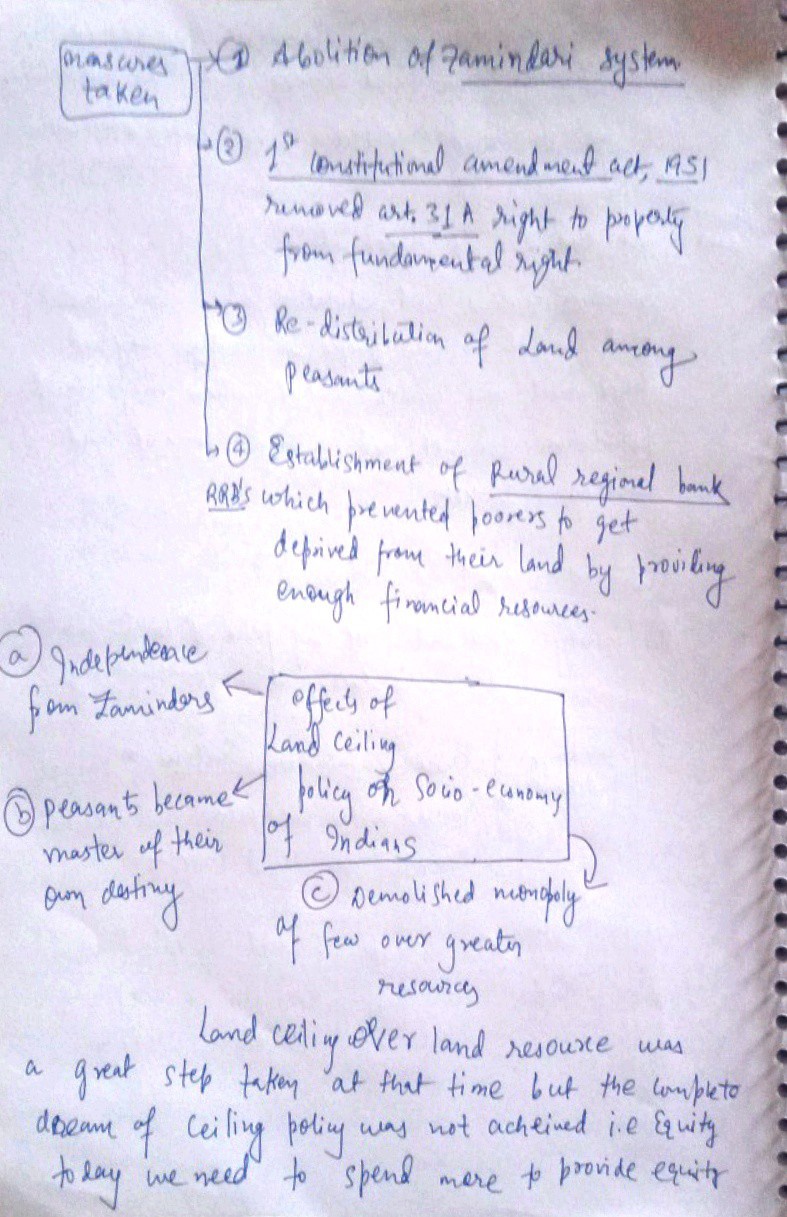 measures
taken
① Abolition of Zamindari system
② 1st constitutional amendment act, 1951
removed art. 31A right to property
from fundamental right
③ Re-distribution of Land among
peasants
④ Establishment of Rural regional bank
RRB's which prevented poorers to get
deprived from their land by providing
enough financial resources.
ⓐ Independence
from Zaminders
effects of
Land ceiling
policy on Socio-economy
of Indians
ⓑ peasants became
master of their
own destiny
ⓒ Demolished monopoly
of few over greater
resources
Land ceiling over land resource was
a great step taken at that time but the complete
dream of ceiling policy was not acheived i.e Equity
today we need to spend more to provide equity